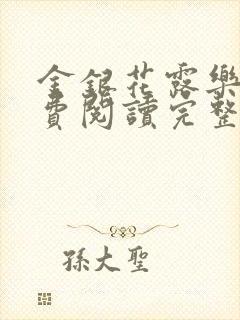 金銀花露樂
費閱讀完整
孫大聖